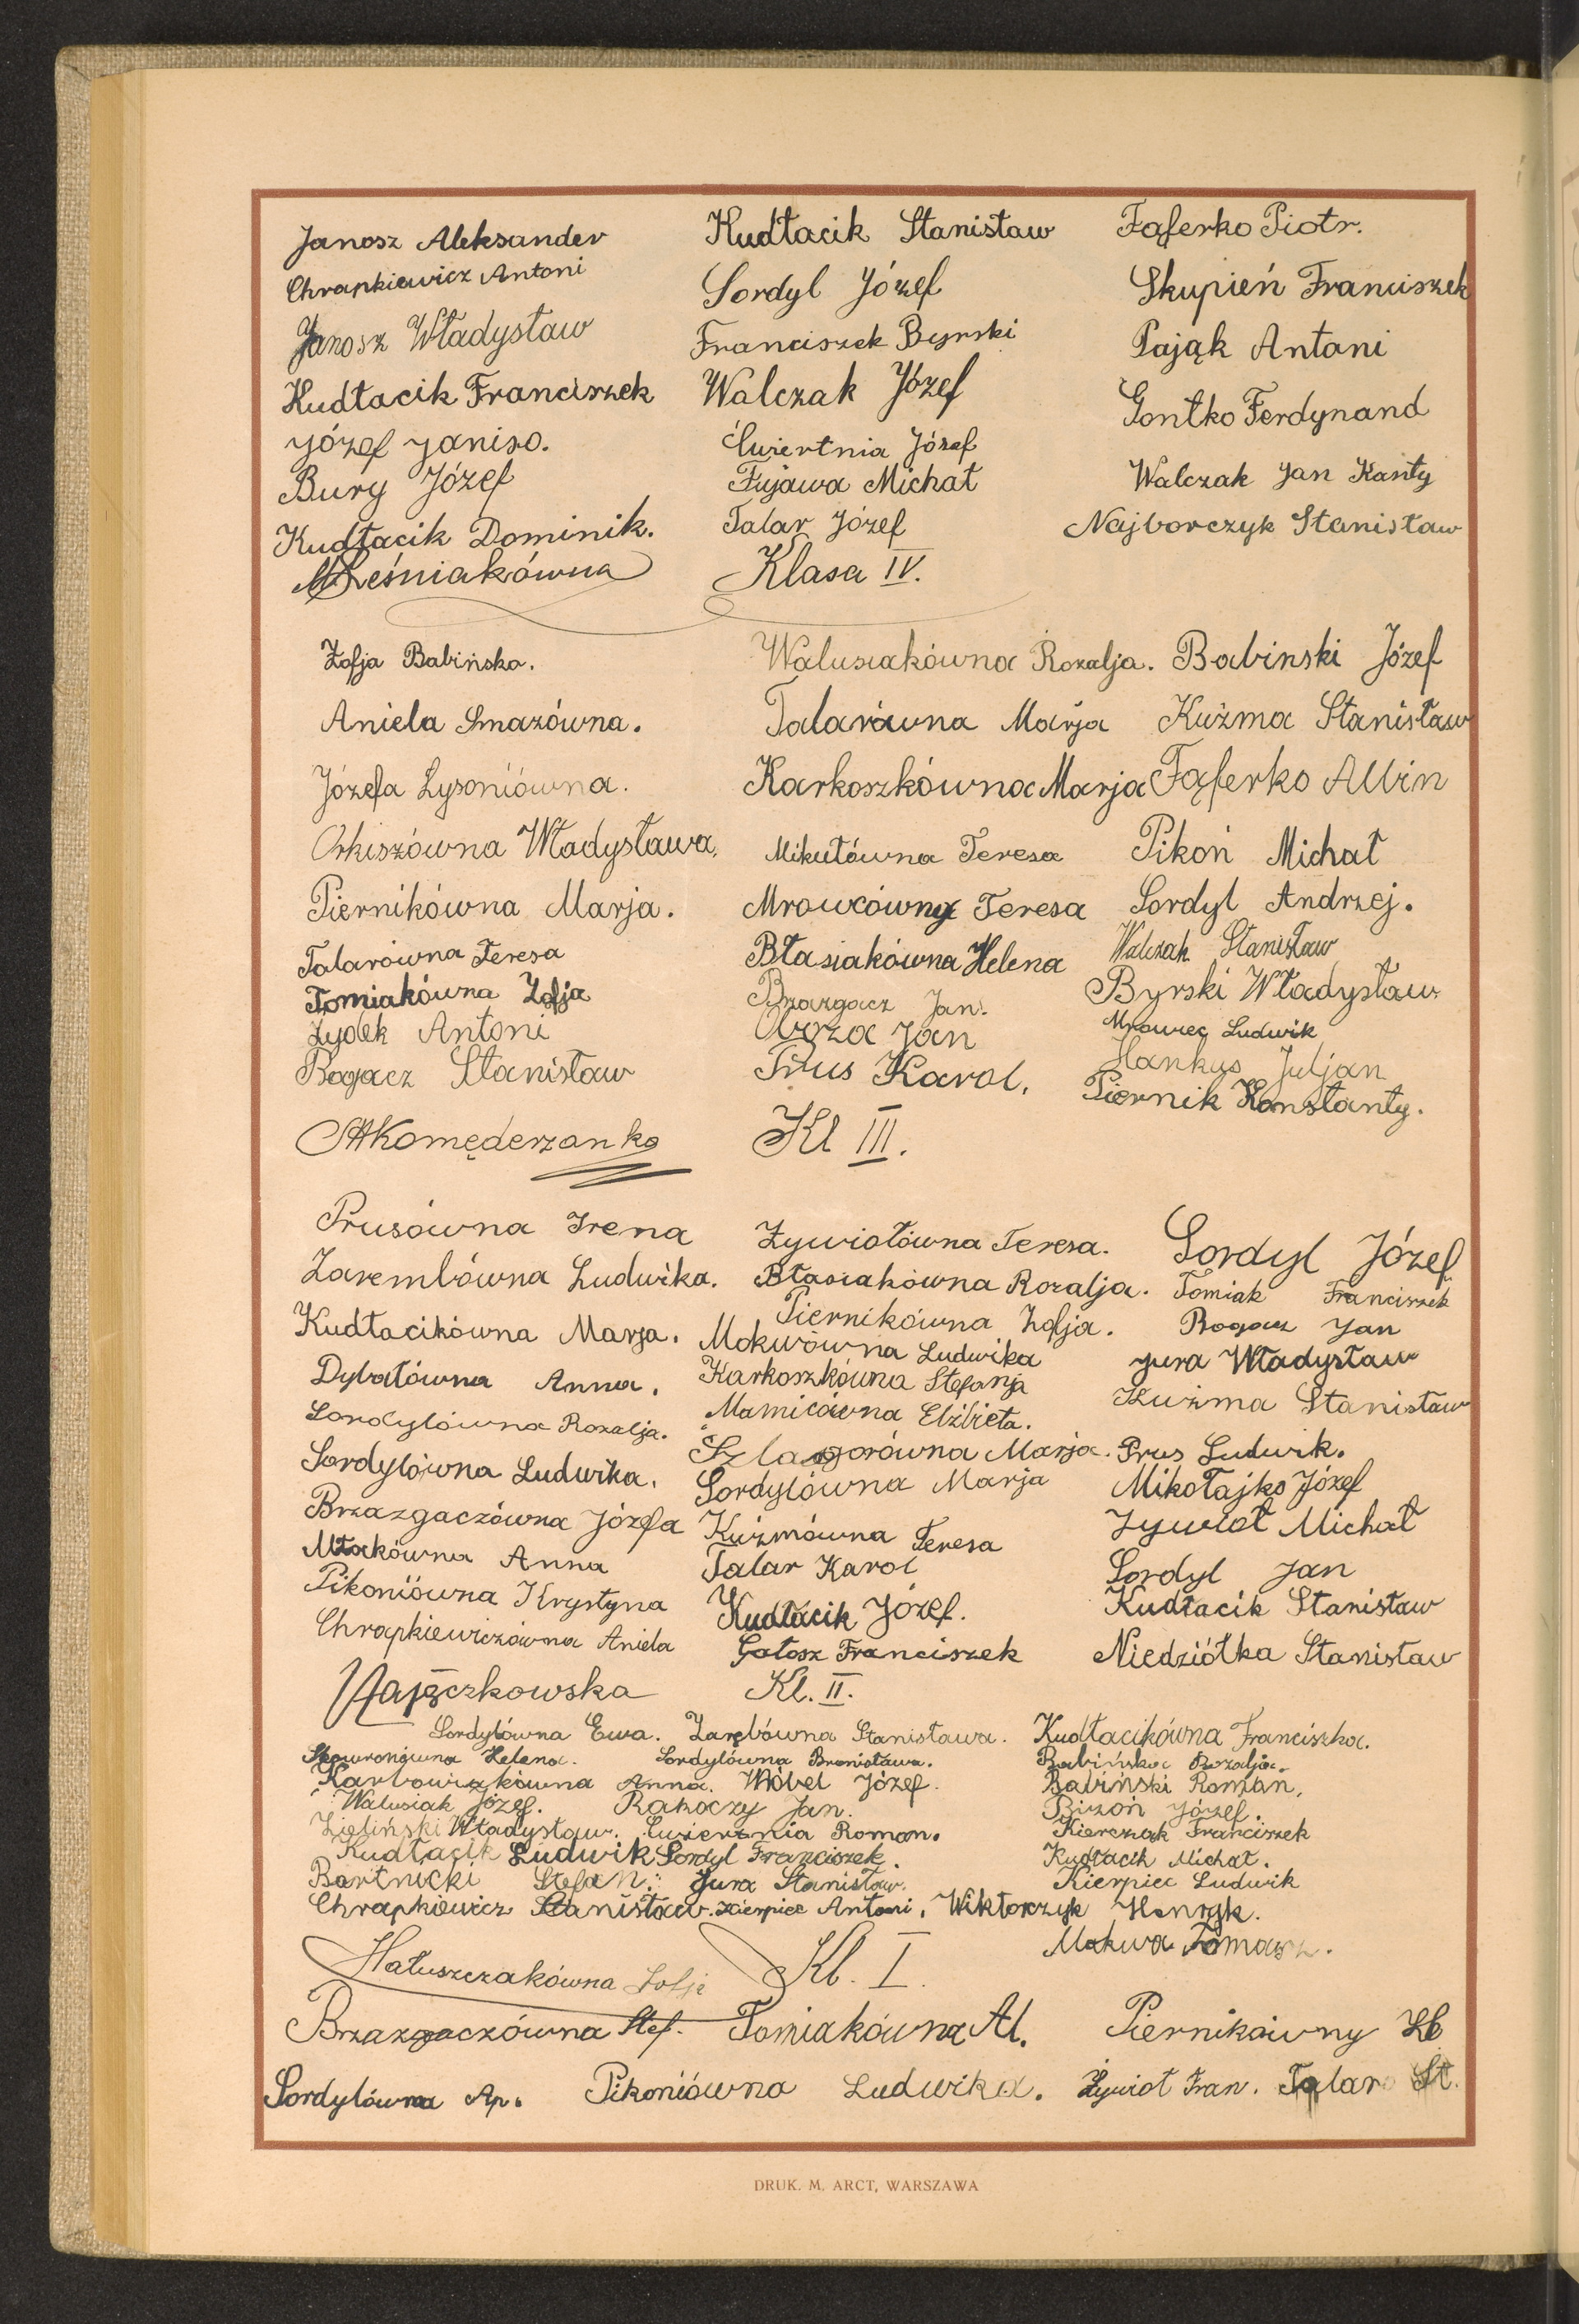 Janosz Aleksander Kudłacik Stanisław Fąferko Piotr.
Chrapkiewicz Antoni Sordyl Józef Skupień Franciszek
Janosz Władysław Franciszek Byrski Pająk Antoni
Kudłacik Franciszek Walczak Józef Gontko Ferdynand
Józef Janiso. Ćwiertnia Józef Walczak Jan Kanty
Bury Józef Fujawa Michał Najborczyk Stanisław
Kudłacik Dominik. Talar Józef
MLeśniakówna Klasa IV.
Zofja Babińska. Walusiakówna Rozalja. Babinski Józef
Aniela Smazówna. Talarówna Marja Kuźma Stanisław
Józefa Łysoniówna. Karkoszkówna Marja Fąferko Albin
Orkiszówna Władysława. Mikułówna Teresa Pikoń Michał
Piernikówna Marja. Mrowcówna Teresa Sordyl Andrzej.
Talarówna Teresa Błasiakówna Helena Walczak Stanisław
Tomiakówna Zofja Brzazgacz Jan. Byrski Władysław
Żydek Antoni Jan Mrowiec Ludwik
Bogacz Stanisław Prus Karol. Hankus Juljan
Piernik Konstanty.
Komęderzanka Kl III.
Prusówna Irena Żywiołówna Teresa. Sordyl Józef
Zarembówna Ludwika. Błasiakówna Rozalja. Tomiak Franciszek
Kudłacikówna Marja. Piernikówna Zofja. Bogacz Jan
Mokwówna Ludwika Jura Władysław
Dybałówna Anna. Karkoszkówna Stefanja Kuźma Stanisław
Sordylówna Rozalja. Mamicówna Elżbieta.
Szlagorówna Marja. Prus Ludwik.
Sordylówna Ludwika. Sordylówna Marja Mikołajko Józef
Brzazgaczówna Józefa Kuźmówna Teresa Żywioł Michał
Młakówna Anna Talar Karol Sordyl Jan
Pikoniówna Krystyna Kudłacik Józef. Kudłacik Stanisław
Chrapkiewiczówna Aniela Gałosz Franciszek Niedziółka Stanisław
Zajączkowska Kl. II.
Sordylówna Ewa. Zarębówna Stanisława. Kudłacikówna Franciszka.
Skowronówna Helena. Sordylówna Bronisława. Babińska Rozalja.
Karbowiakówna Anna. Wróbel Józef. Babiński Roman.
Walusiak Józef. Rakoczy Jan. Bizoń Józef.
Zieliński Władysław. Ćwiertnia Roman. Kierczak Franciszek
Kudłacik Ludwik Sordyl Franciszek. Kudłacik Michał.
Bartnicki Stefan. Jura Stanisław. Kierpiec Ludwik
Chrapkiewicz Stanisław. Kierpiec Antoni. Wiktorczyk Henryk.
Mokwa Tomasz.
Hałuszczakówna Zofja Kl. I.
Brzazgaczówna Stef. Tomiakówna Al. Piernikówny
Sordylówna Ap. Pikoniówna Ludwika. Żywioł Fran. Talar St.
DRUK. M. ARCT, WARSZAWA